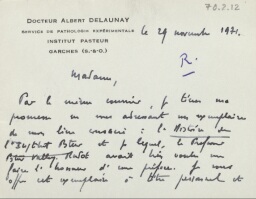 70.2.12
DOCTEUR ALBERT DELAUNAY
SERVICE DE PATHOLOGIE EXPÉRIMENTALE
INSTITUT PASTEUR
GARCHES (S.&O.)
le 29 novembre 1971.
R.
Madame,
Par le même courrier, je tiens ma
promesse en vous adressant un exemplaire
de mon livre consacré à l'Histoire de
l'Institut Pasteur et pour lequel, le Professeur
Pasteur Vallery-Radot avait bien voulu me
faire l'honneur d'une préface. Je vous
offre cet exemplaire à titre personnel et